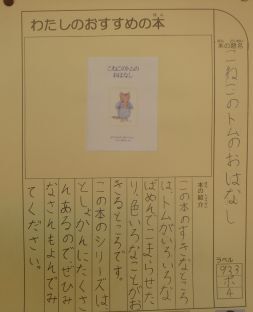 わたしのおすすめの本
本の題名
こねこのトムのおはなし
こねこのトムの
おはなし
本の紹介
この本のすきなところ
は、トムがいろいろな
ばめんでこまらせた
り、色いろなことがお
きるところです。
この本のシリーズは、
としょかんにたくさ
んあるので、ぜひみ
なさんもよんでみ
てください。
ラベル
933
ポ
4